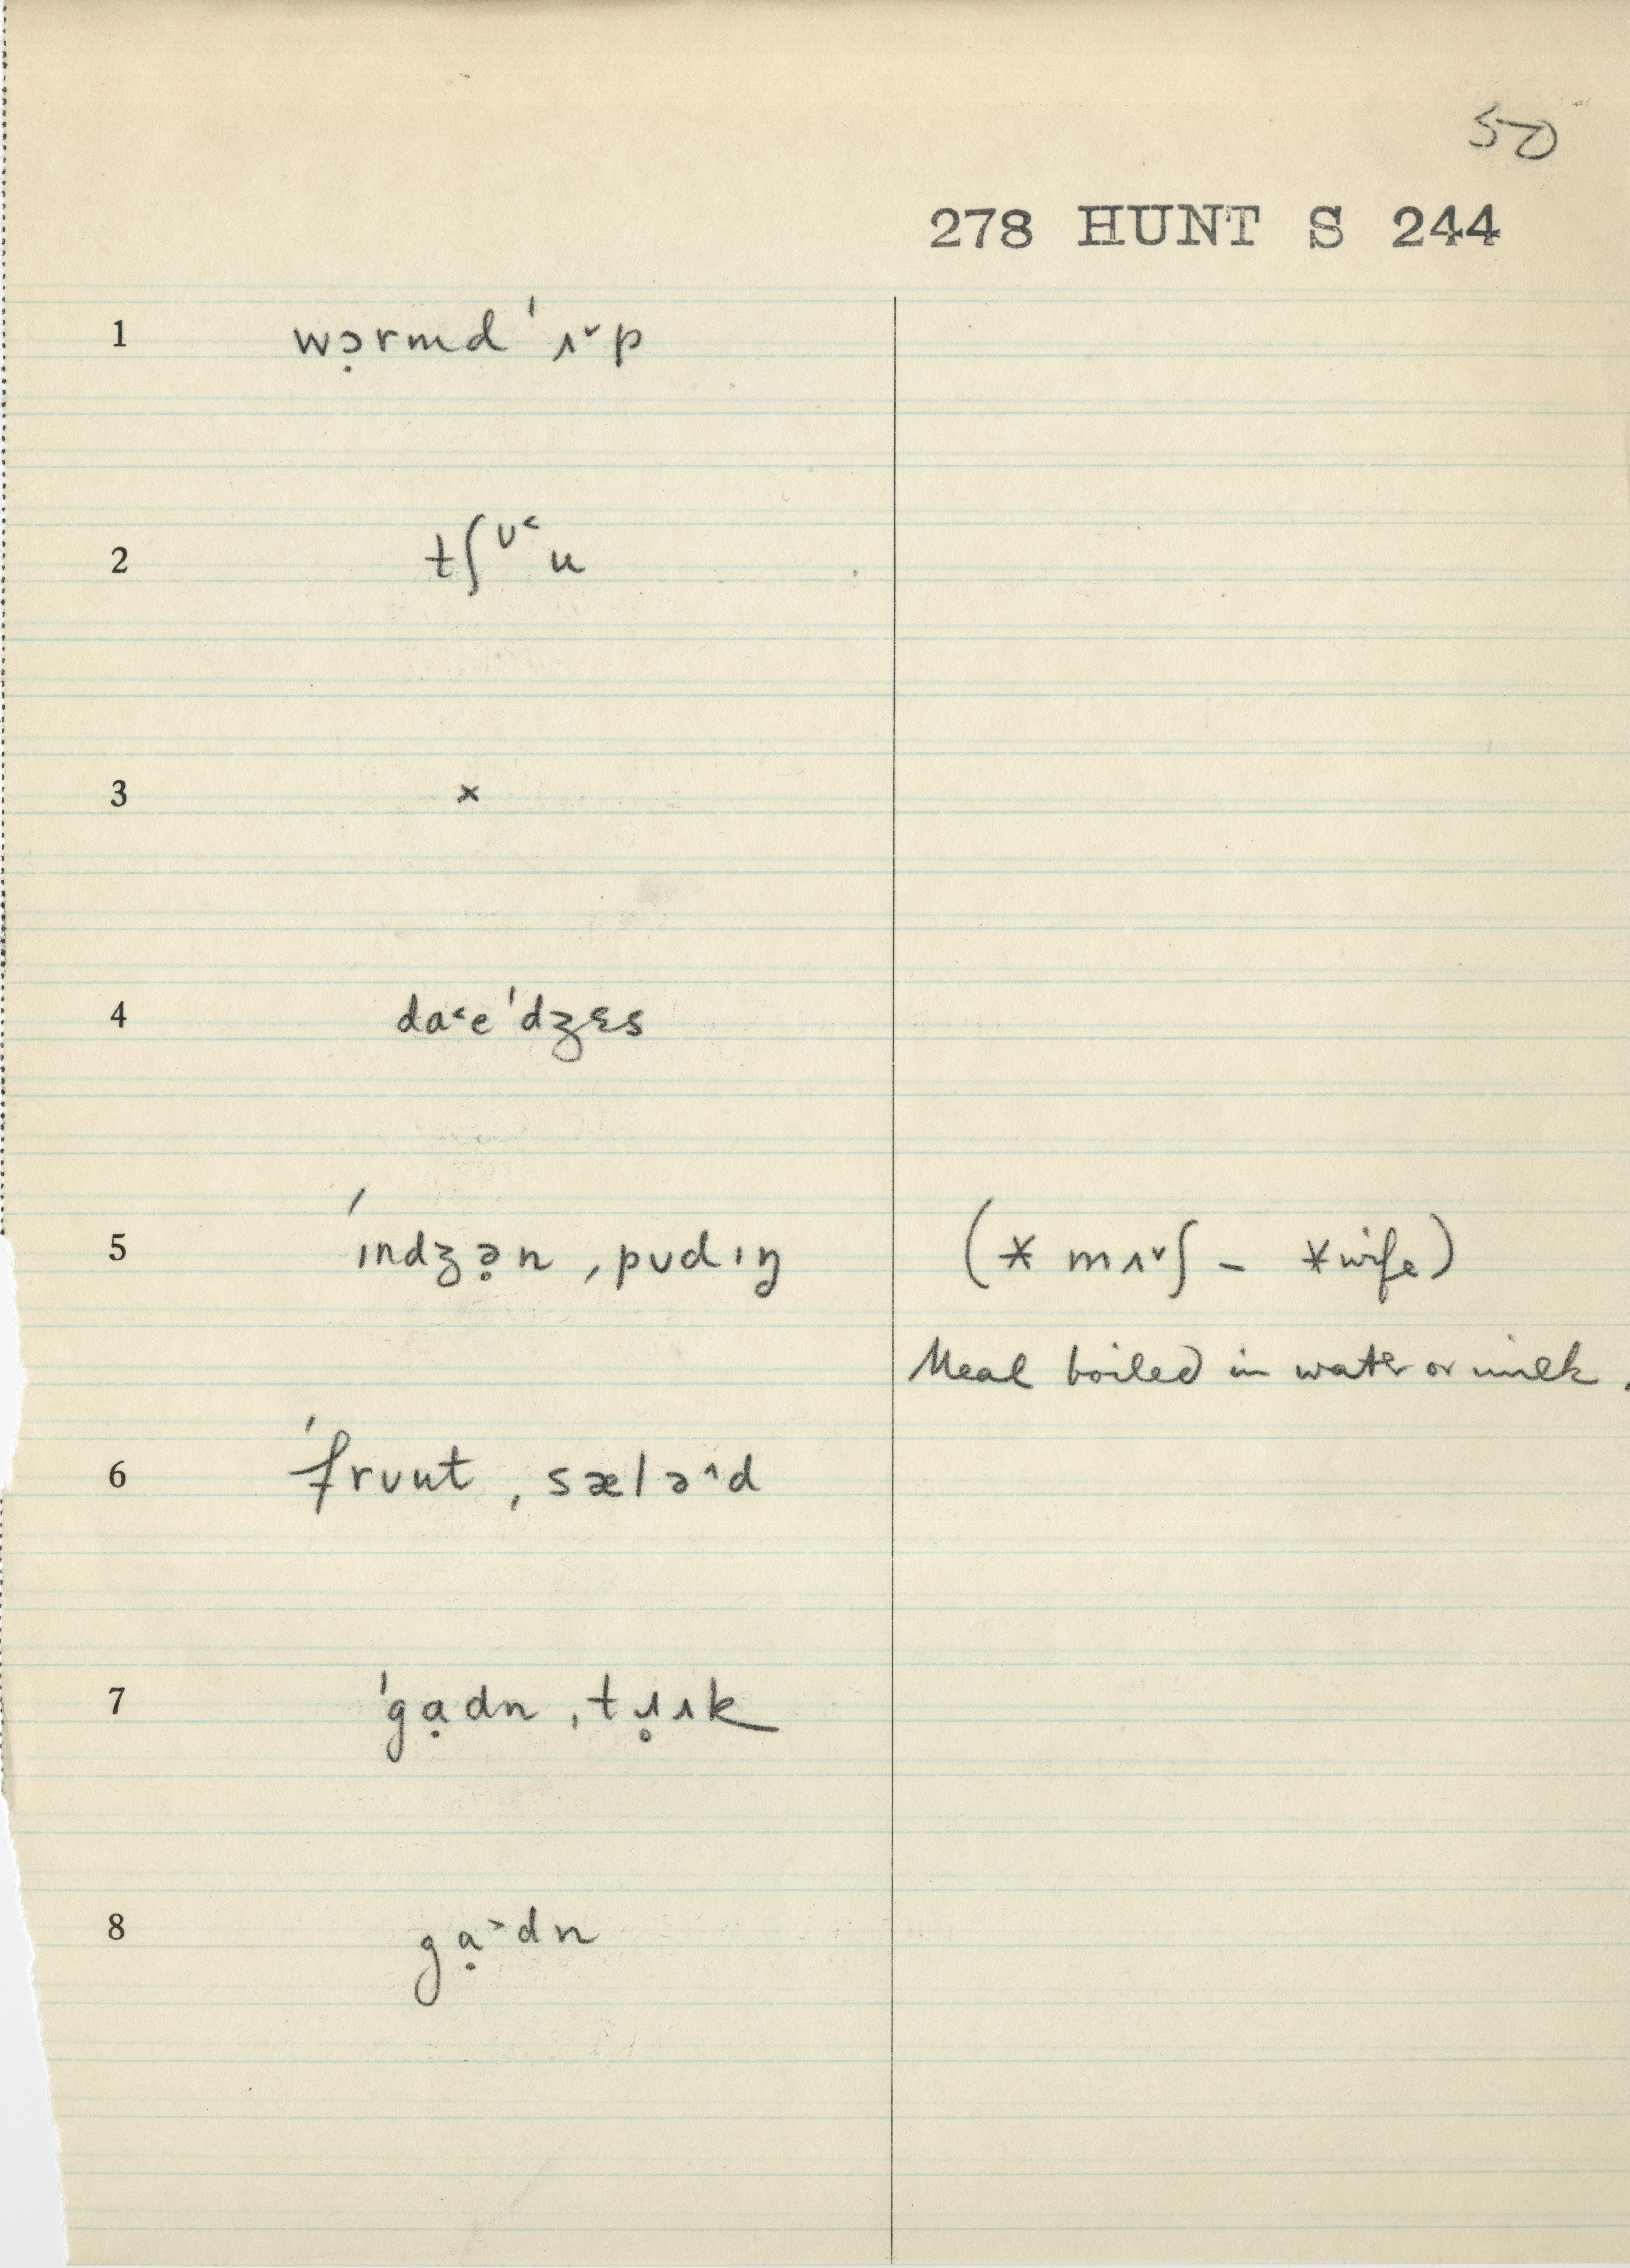 50
278 HUNT S 244
1 wɔ̣rmd ˈʌ˅p
2 tʃᶷ˂u
3 ×
4 da˂eˈdʒɛs
5 ˈɪndʒə̣n ˌpʊdɪŋ (* mʌ˅ʃ – *wife)
Meal boiled in water or milk.
6 ˈfrʊut ˌsælə˄d
7 ˈgạdn ˌtɹ̥ʌk
8 gạ˃dn